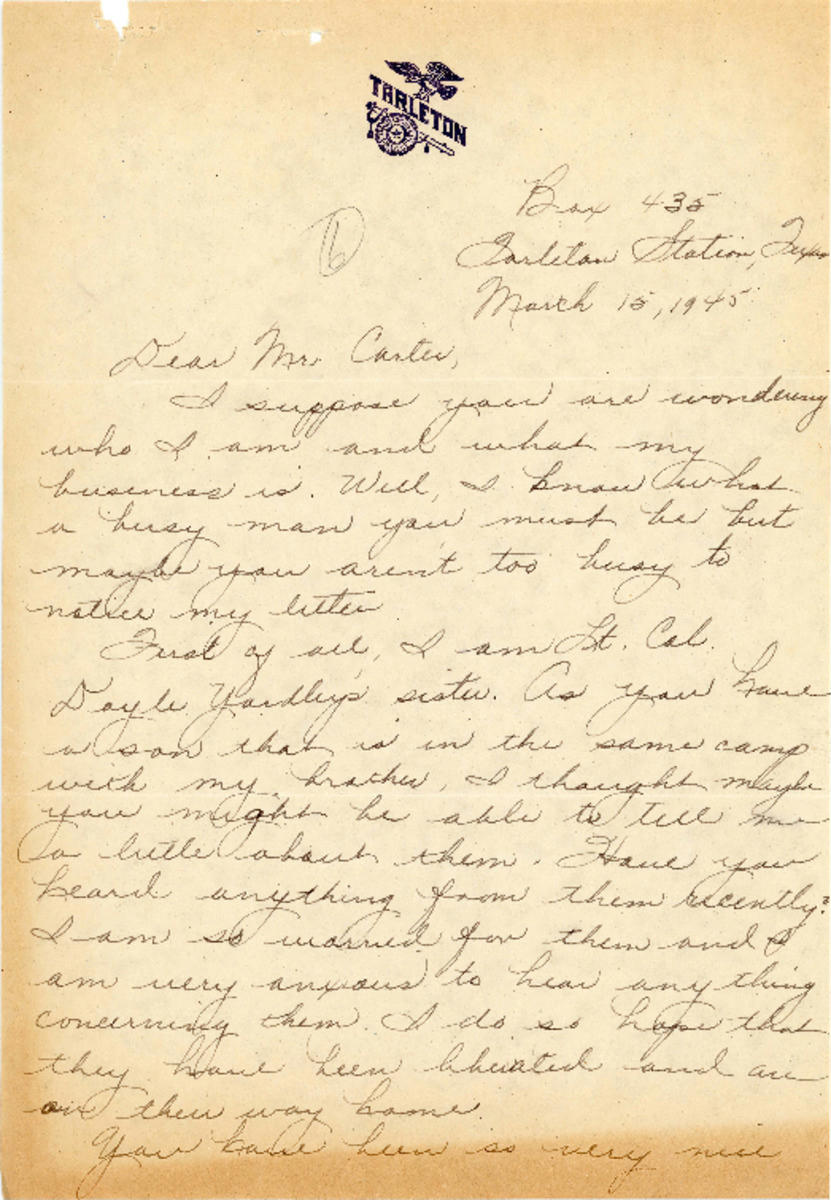 TARLETON
6
Box 435
Tarleton Station, Texas
March 15, 1945
Dear Mr. Carter,
I suppose you are wondering
who I am and what my
business is. Well, I know what
a busy man you must be but
maybe you aren't too busy to
notice my letter
First of all, I am Lt. Col.
Doyle Yardley's sister. As you have
a son that is in the same camp
with my brother, I thought maybe
you might be able to tell me
a little about them. Have you
heard anything from them recently?
I am so worried for them and I
am very anxious to hear anything
concerning them. I do so hope that
they have been liberated and are
on their way home.
You have been so very nice